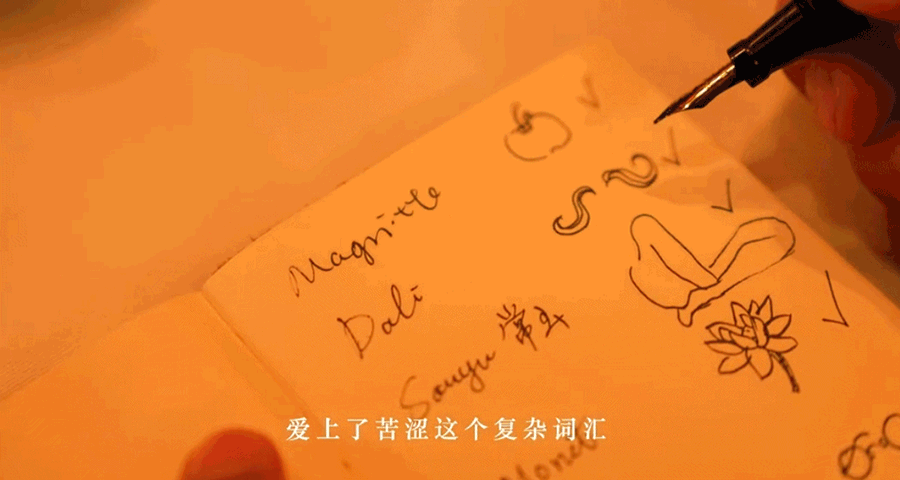 Magritte
Dali
Sanyu 常玉
爱上了苦涩这个复杂词汇